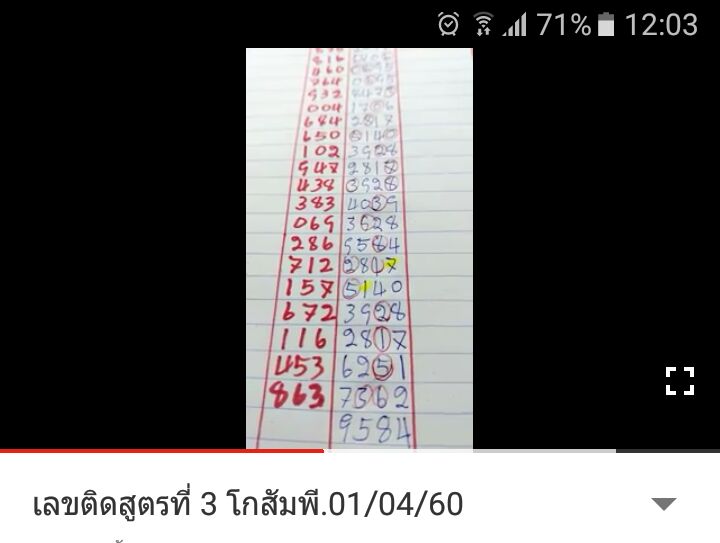 71% 12:03
816
460
764
932
004
684 2817
650 5140
102 3928
947 2817
438 3928
383 4039
069 3628
286 9584
712 2817
157 5140
672 3928
116 2817
453 6251
863 7362
9584
เลขติดสูตรที่ 3 โกสัมพี.01/04/60